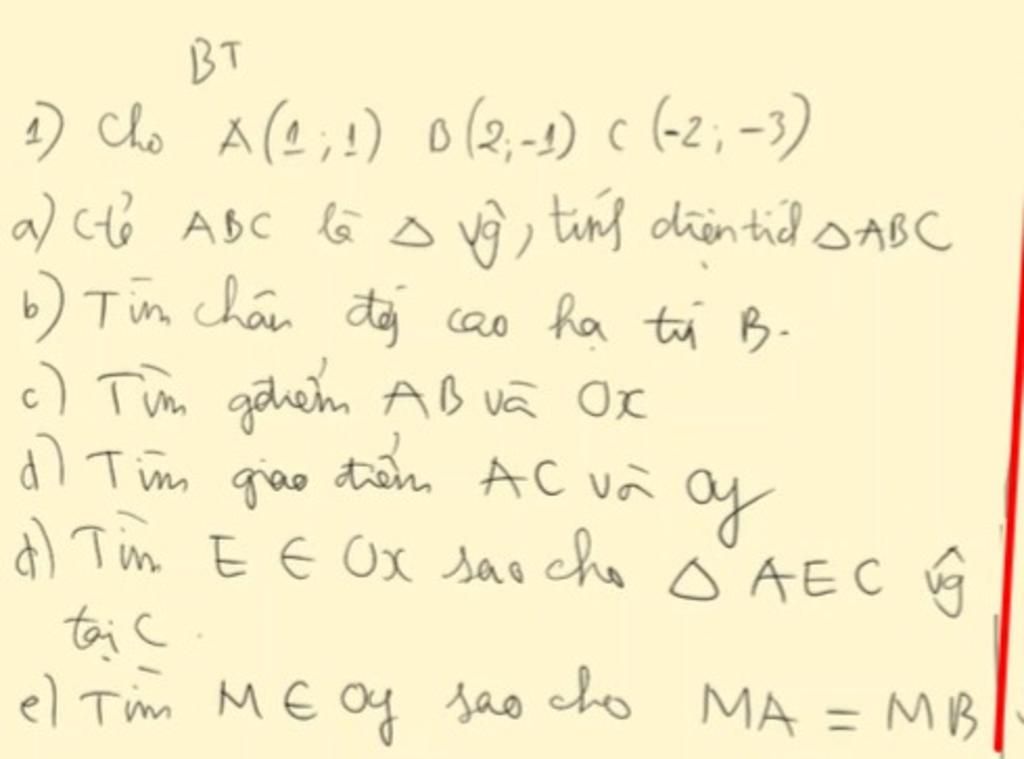 BT
1) Cho A(1;1) B(2;-1) C(-2;-3)
a) Ctỏ ABC là Δ vg, tính diện tích ΔABC
b) Tìm chân đg cao hạ từ B.
c) Tìm gđiểm AB và Ox
d) Tìm giao điểm AC và Oy
đ) Tìm E ∈ Ox sao cho Δ AEC vg
tại C.
e) Tìm M ∈ Oy sao cho MA = MB